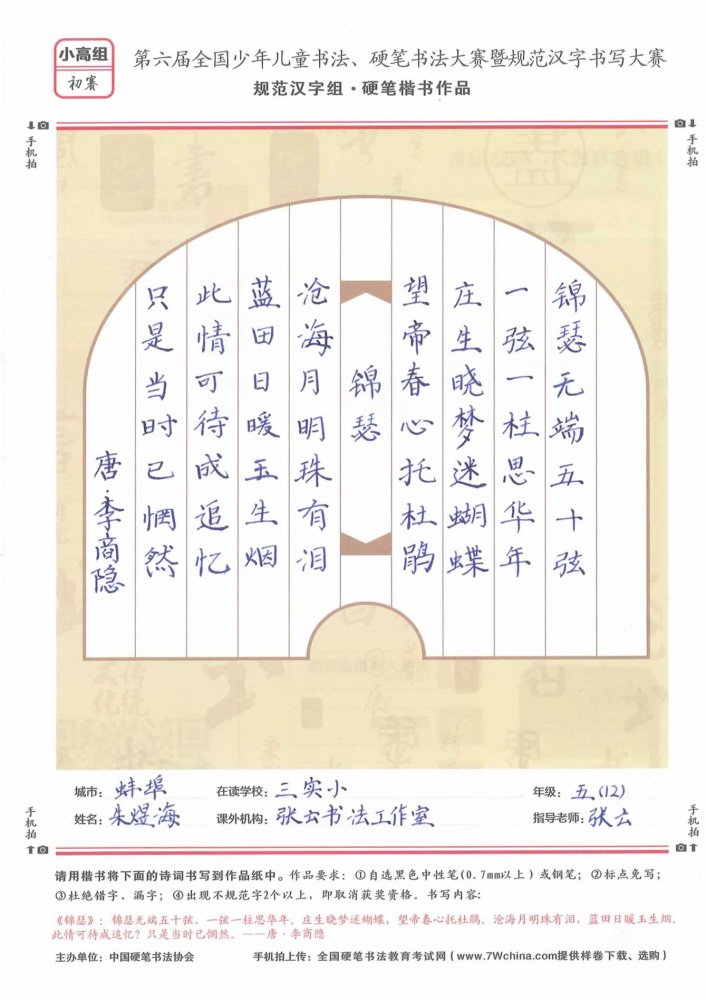 小高组
初赛
第六届全国少年儿童书法、硬笔书法大赛暨规范汉字书写大赛
规范汉字组·硬笔楷书作品
手机拍
手机拍
锦瑟无端五十弦
一弦一柱思华年
庄生晓梦迷蝴蝶
望帝春心托杜鹃
锦瑟
沧海月明珠有泪
蓝田日暖玉生烟
此情可待成追忆
只是当时已惘然
唐·李商隐
城市：蚌埠 在读学校：三实小 年级：五(12)
姓名：朱煜海 课外机构：张云书法工作室 指导老师：张云
手机拍
手机拍
请用楷书将下面的诗词书写到作品纸中。作品要求：①自选黑色中性笔(0.7mm以上)或钢笔；②标点免写；
③杜绝错字、漏字；④出现不规范字2个以上，即取消获奖资格。书写内容：
《锦瑟》：锦瑟无端五十弦，一弦一柱思华年。庄生晓梦迷蝴蝶，望帝春心托杜鹃。沧海月明珠有泪，蓝田日暖玉生烟。
此情可待成追忆？只是当时已惘然。——唐·李商隐
主办单位：中国硬笔书法协会 手机拍上传：全国硬笔书法教育考试网（www.7Wchina.com提供样卷下载、选购）